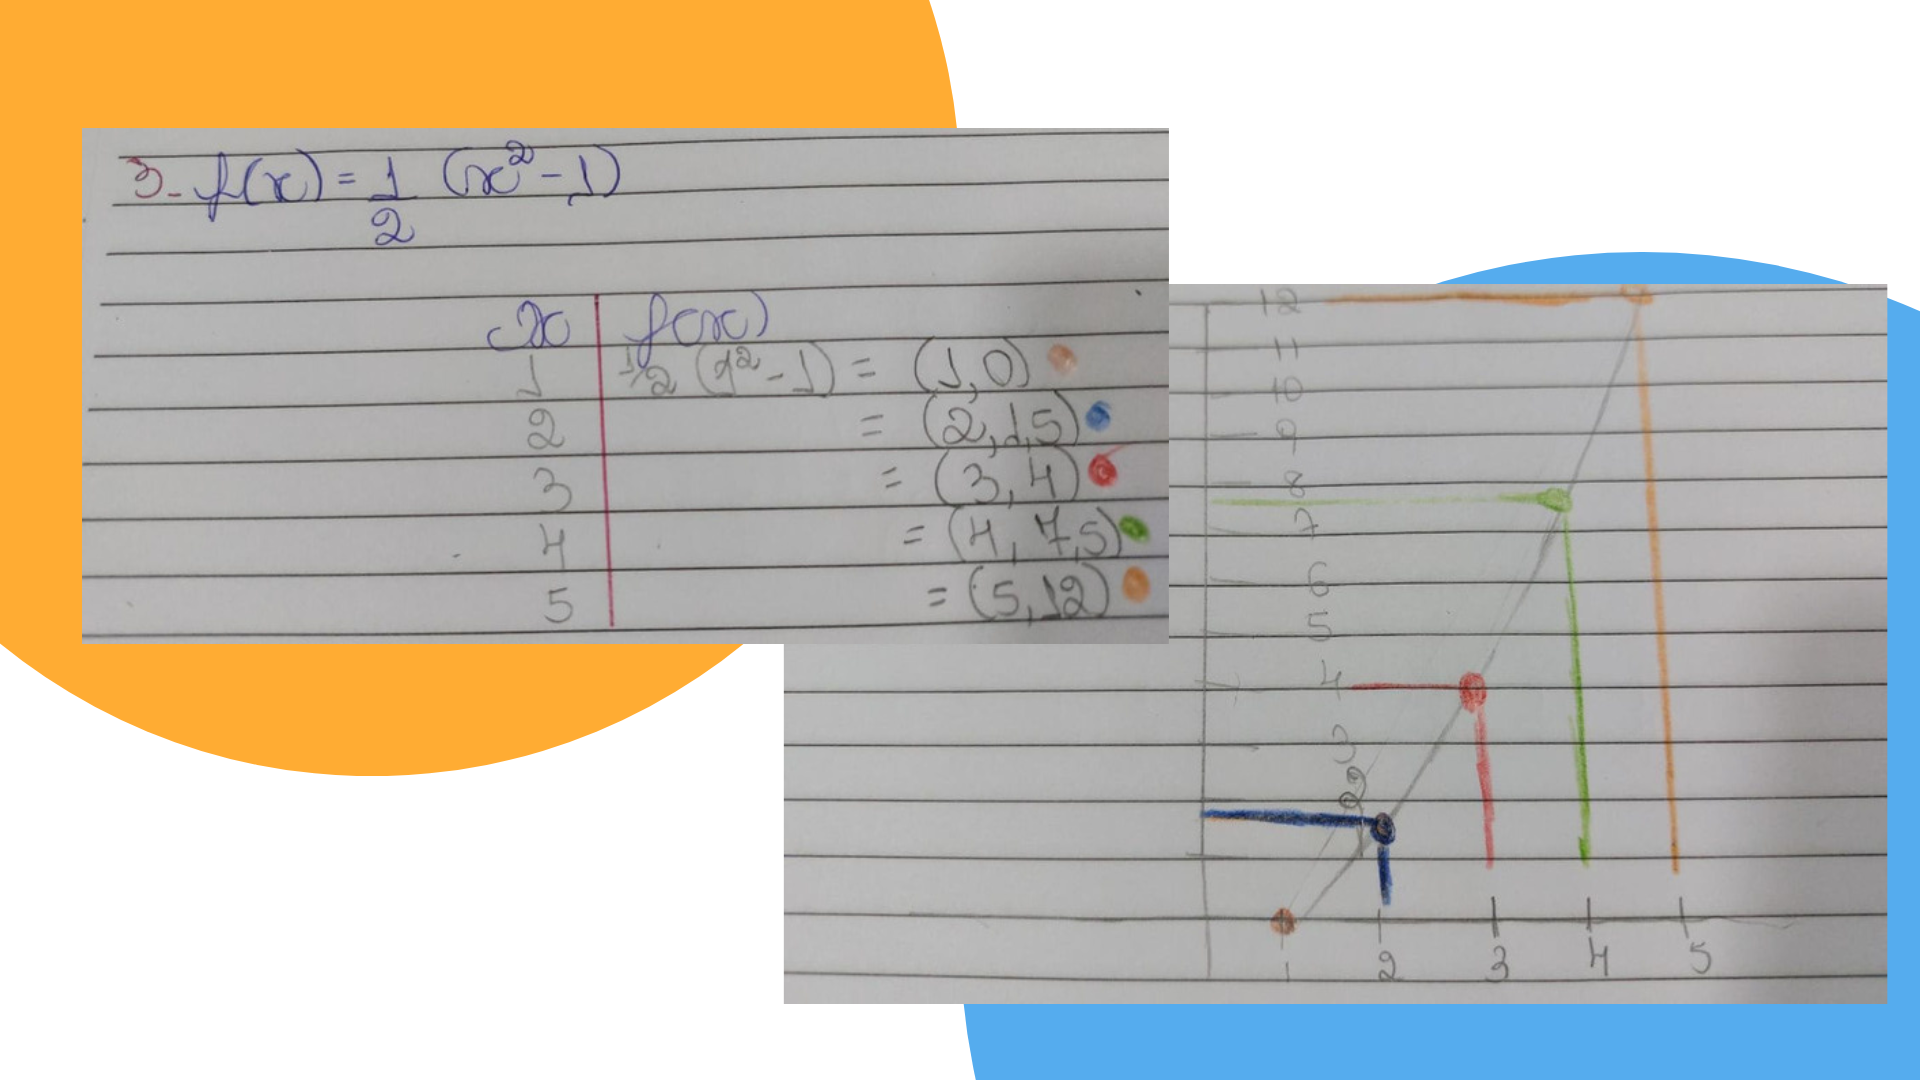 3- f(x) = 1/2 (x² - 1)
x | f(x)
1 | 1/2 (1² - 1) = (1, 0)
2 | = (2, 1,5)
3 | = (3, 4)
4 | = (4, 7,5)
5 | = (5, 12)
12
11
10
9
8
7
6
5
4
3
2
1
1 2 3 4 5